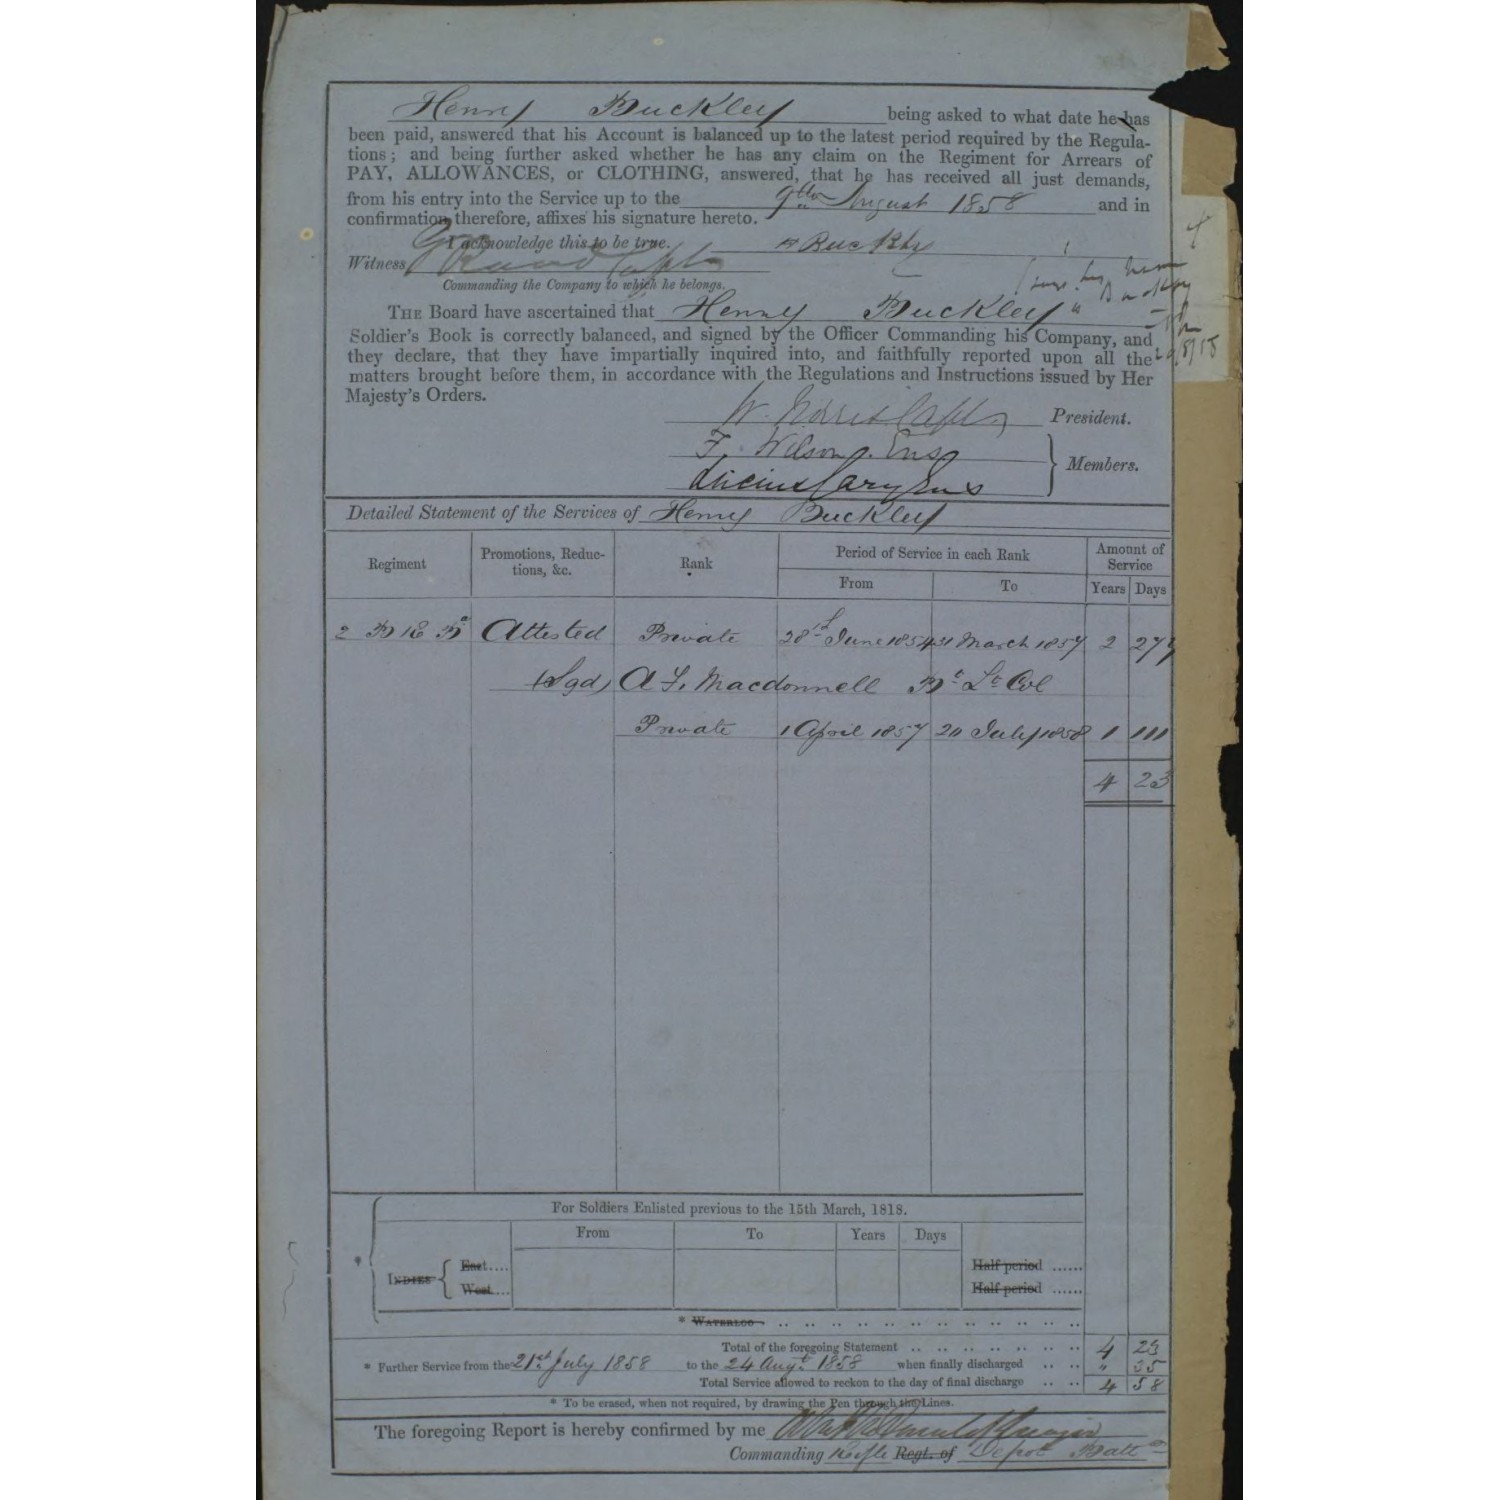 Henry Buckley being asked to what date he has
been paid, answered that his Account is balanced up to the latest period required by the Regula-
tions; and being further asked whether he has any claim on the Regiment for Arrears of
PAY, ALLOWANCES, or CLOTHING, answered, that he has received all just demands,
from his entry into the Service up to the 9th August 1858 and in
confirmation therefore, affixes his signature hereto.
I acknowledge this to be true. H Buckley
Witness Capt
Commanding the Company to which he belongs.
THE Board have ascertained that Henry Buckley "
Soldier's Book is correctly balanced, and signed by the Officer Commanding his Company, and
they declare, that they have impartially inquired into, and faithfully reported upon all the
matters brought before them, in accordance with the Regulations and Instructions issued by Her
Majesty's Orders.
W. Norris Capt. President.
F. Wilson. Ens
Members.
Lucius Cary Ens
Detailed Statement of the Services of Henry Buckley
Regiment Promotions, Reduc-tions, &c. Rank Period of Service in each Rank Amount of Service
From To Years Days
2 R B Bn Attested Private 28th June 1854 31 March 1857 2 277
(Sgd) A F. Macdonnell Bt Lt Col
Private 1 April 1857 20 July 1858 1 111
4 23
For Soldiers Enlisted previous to the 15th March, 1818.
From To Years Days
* INDIES East.... Half period ......
West.... Half period ......
* WATERLOO
Total of the foregoing Statement 4 23
* Further Service from the 21st July 1858 to the 24 Augt 1858 when finally discharged " 35
Total Service allowed to reckon to the day of final discharge 4 58
* To be erased, when not required, by drawing the Pen through the Lines.
The foregoing Report is hereby confirmed by me
Commanding Rifle Regt. of Depot Battn